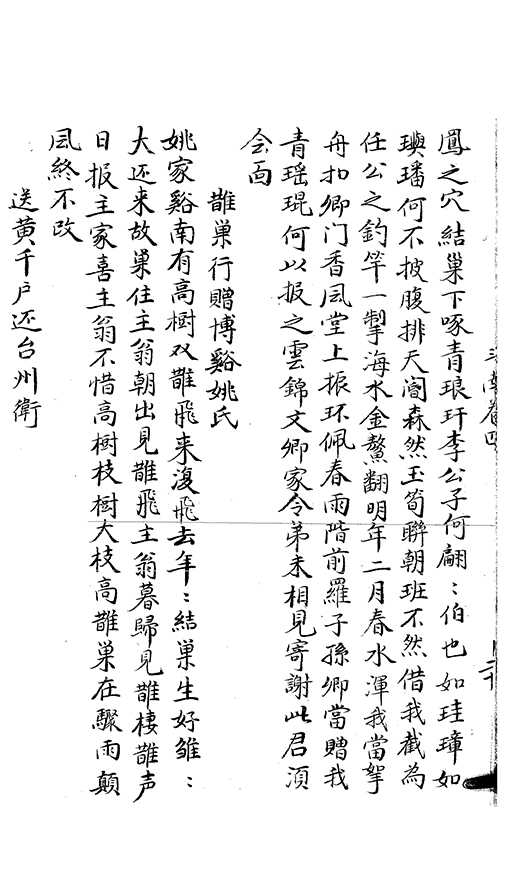 鳳之穴結巢下啄青琅玕李公子何翩：伯也如珪璋如
璵璠何不披腹排天閽森然玉筍聯朝班不然借我截為
任公之釣竿一掣海水金鰲翻明年二月春水渾我當拏
舟扣卿門香風堂上振环佩春雨階前羅子孫卿當贈我
青瑶琨何以报之雲錦文卿家令弟未相見寄謝此君湏
会面
鵲巢行贈博谿姚氏
姚家谿南有高樹双鵲飛来復飛去年：結巢生好雏：
大还来故巢住主翁朝出見鵲飛主翁暮歸見鵲棲鵲声
日报主家喜主翁不惜高樹枝樹大枝高鵲巢在驟雨顛
風終不改
送黄千户还台州衛